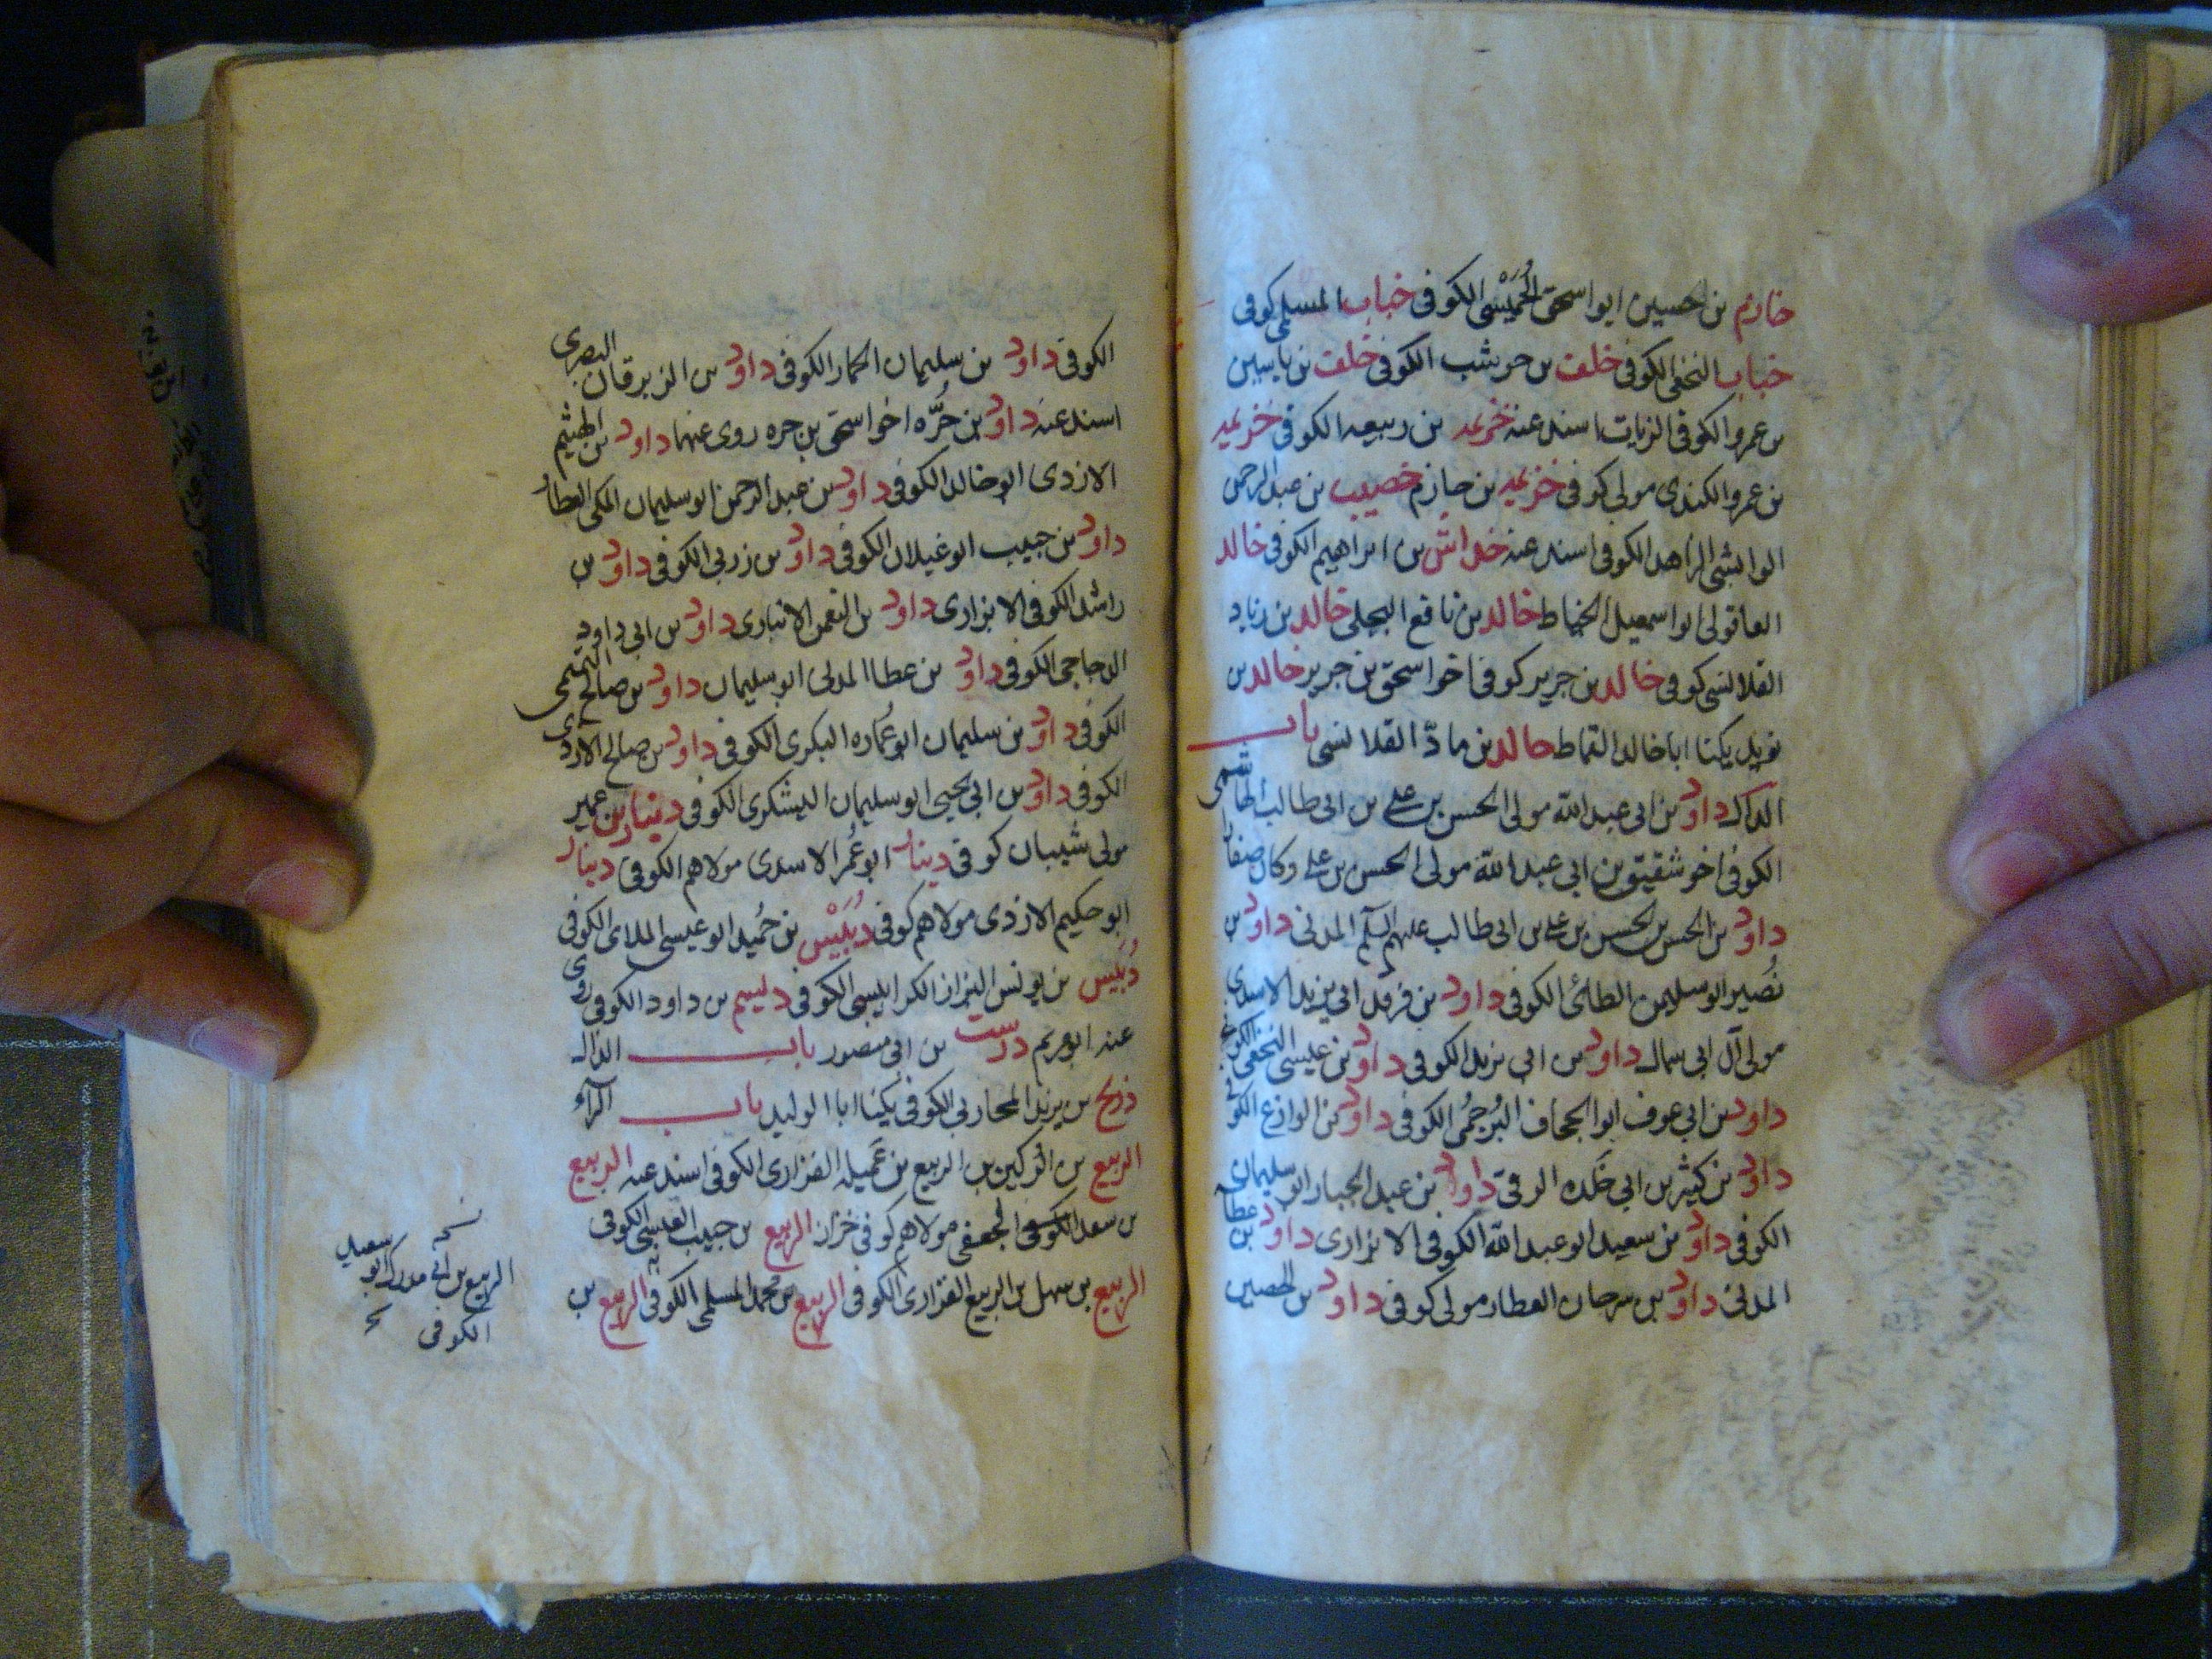 خازم بن حسين ابو اسحق الحُمَيْسى الكوفى خباب المسلمى كوفى
خباب النخعى الكوفى خلف بن حوشب الكوفى خلف بن ياسين
بن عمرو الكوفى الزيات اسند عنه خزيمه بن ربيعه الكوفى خزيمه
بن عمرو الكندى مولى كوفى خزيمه بن حازم خصيب بن عبد الرحمن
الوابشى الزاهد الكوفى اسند عنه خداش بن ابراهيم الكوفى خالد
العاقولى ابو اسمعيل الخياط خالد بن نافع البجلى خالد بن زياد
القلانسى كوفى خالد بن جرير كوفى اخو اسحق بن جرير خالد بن
يزيد يكنا ابا خالد القماط خالد بن مادّ القلانسى باب
الدال داود بن ابى عبد الله مولى الحسن بن على بن ابى طالب الهاشمى
الكوفى اخو شقيق بن ابى عبد الله مولى الحسن بن على وكان صفار
داود بن الحسن بن الحسن بن على بن ابى طالب عليهم السلم المدنى داود بن
نُصَير ابو سليمن الطائى الكوفى داود بن فرقد ابى يزيد الاسدى
مولى آل ابى سمال داود بن ابى يزيد الكوفى داود بن عيسى النخعى الكوفى
داود بن ابى عوف ابو الجحاف البُرجُمى الكوفى داود بن الوازع الكوفى
داود بن كثير بن ابى خَلَده الرقى داود بن عبد الجبار ابو سليمان
الكوفى داود بن سعيد ابو عبد الله الكوفى الابزارى داود بن عطا
المدنى داود بن سرحان العطار مولى كوفى داود بن الحصين
الكوفى داود بن سليمان الحمار الكوفى داود بن الزبرقان البصرى
اسند عنه داود بن حُرَّه اخو اسحق بن حره روى عنهما داود بن الهيثم
الازدى ابو خالد الكوفى داود بن عبد الرحمن ابو سليمان المكى العطار
داود بن حبيب ابو غيلان الكوفى داود بن زربى الكوفى داود بن
راشد الكوفى الابزارى داود بن النعمن الانبارى داود بن ابى داود
الدجاجى الكوفى داود بن عطا المدنى ابو سليمان داود بن صالح التيمى
الكوفى داود بن سليمان ابو عُماره البكرى الكوفى داود بن صالح الازدى
الكوفى داود بن ابى يحيى ابو سليمان اليشكرى الكوفى دينار بن عمير
مولى شيبان كوفى دينار ابو عُمر الاسدى مولاهم الكوفى دينار
ابو حكيم الازدى مولاهم كوفى دُبَيْس بن حُميد ابو عيسى الملاى الكوفى
دُبَيس بن يونس البزاز الكرابيسى الكوفى ديسم بن داود الكوفى روى
عنه ابو مريم درست بن ابى منصور باب الذال
ذريح بن يزيد المحاربى الكوفى يكنا ابا الوليد باب الراء
الربيع بن الركين بن الربيع بن عَميله الفزارى الكوفى اسند عنه الربيع
بن سعد الجعفى مولاهم كوفى خزاز الربيع بن حبيب العبسى الكوفى
الربيع بن سهل بن الربيع الفزارى الكوفى الربيع بن محمد المسلمى الكوفى الربيع بن
نسخه
الربيع بن ابى مدرك ابو سعيد
الكوفى